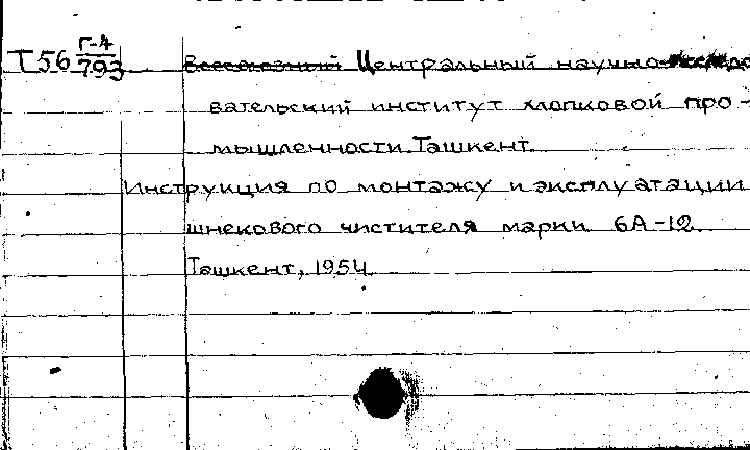 Т56 Г-4/793 Всесоюзный Центральный научно-исследо
вательский институт хлопковой про-
мышленности. Ташкент.
Инструкция по монтажу и эксплуатации
шнекового чистителя марки 6А-12.
Ташкент, 1954